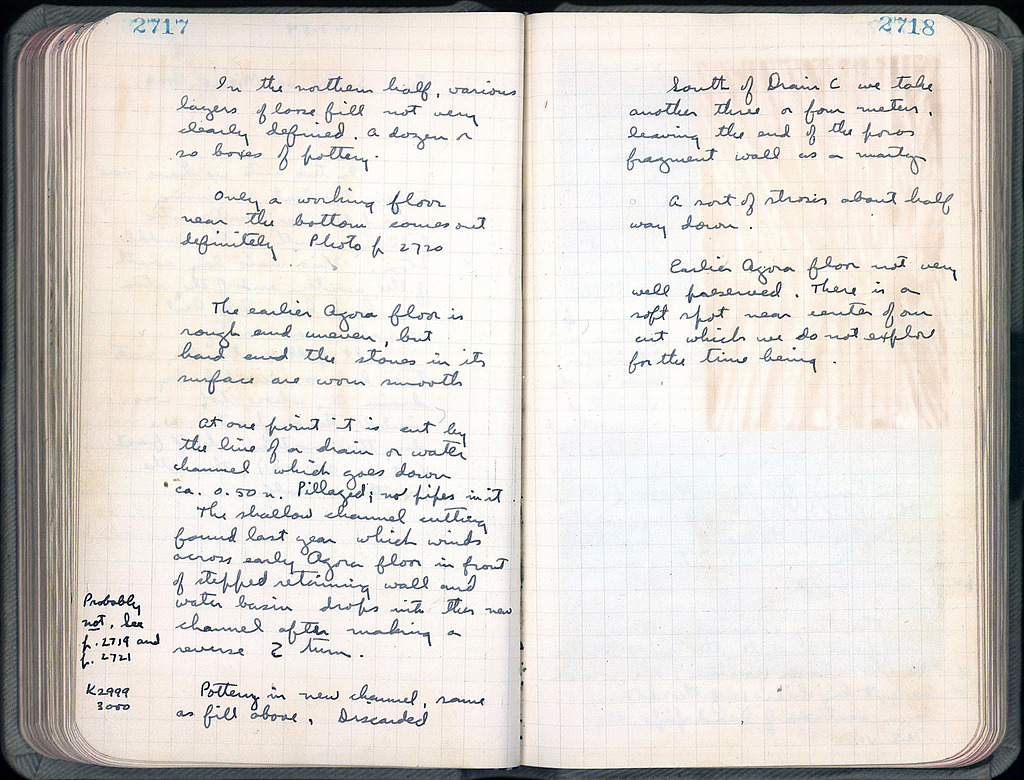 2717
In the northern half, various
layers of loose fill not very
clearly defined. A dozen or
so boxes of pottery.
Only a working floor
near the bottom comes out
definitely. Photo p. 2720
The earlier Agora floor is
rough and uneven, but
hard and the stones in its
surface are worn smooth
At one point it is cut by
the line of a drain or water
channel which goes down
ca. 0.50 m. Pillaged; no pipes in it.
The shallow channel cutting
found last year which winds
across early Agora floor in front
of stepped retaining wall and
water basin drops into this new
channel after making a
reverse Z turn.
Probably
not, see
p. 2719 and
p. 2721
K2999
3000
Pottery in new channel, same
as fill above. Discarded
2718
South of Drain C we take
another three or four meters,
leaving the end of the poros
fragment wall as a marty
A sort of strosis about half
way down.
Earlier Agora floor not very
well preserved. There is a
soft spot near center of our
cut which we do not explore
for the time being.